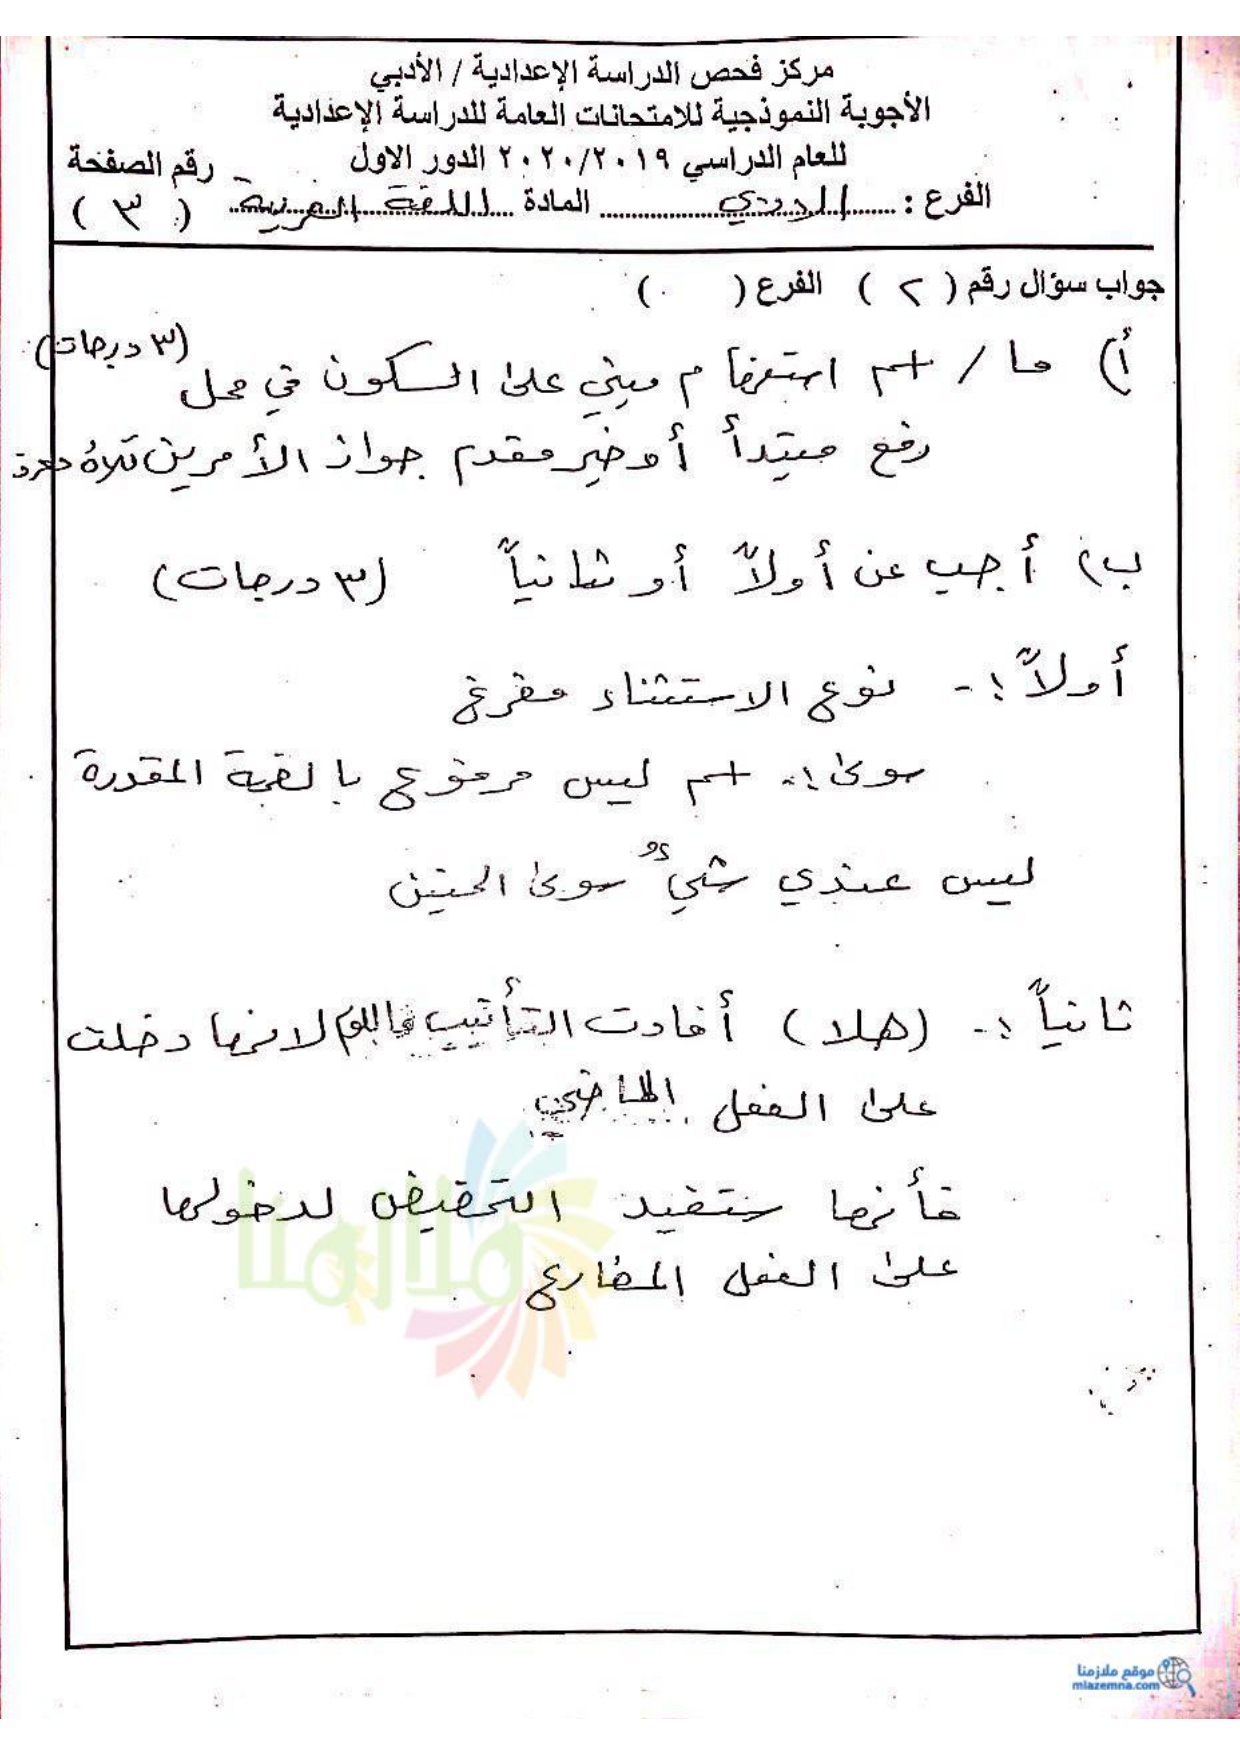 مركز فحص الدراسة الإعدادية / الأدبي
الأجوبة النموذجية للامتحانات العامة للدراسة الإعدادية
للعام الدراسي ٢٠٢٠/٢٠١٩ الدور الاول
رقم الصفحة
الفرع : الادبي المادة اللغة العربية ( ٣ )
جواب سؤال رقم ( ٢ ) الفرع ( )
أ) ما / اسم استفهام مبني على السكون في محل (٣ درجات)
رفع مبتدأ أو خبر مقدم جواز الأمرين تلاهُ معرفة
ب) أجب عن أولاً أو ثانياً (٣ درجات)
أولاً :- نوع الاستثناء مفرغ
سوى :- اسم ليس مرفوع بالضمة المقدرة
ليس عندي شيءٌ سوى الحنين
ثانياً :- (هلا) أفادت التأنيب واللوم لانها دخلت
على الفعل الماضي
فأنها ستفيد التحضيض لدخولها
على الفعل المضارع
ملازمنا
موقع ملازمنا
mlazemna.com